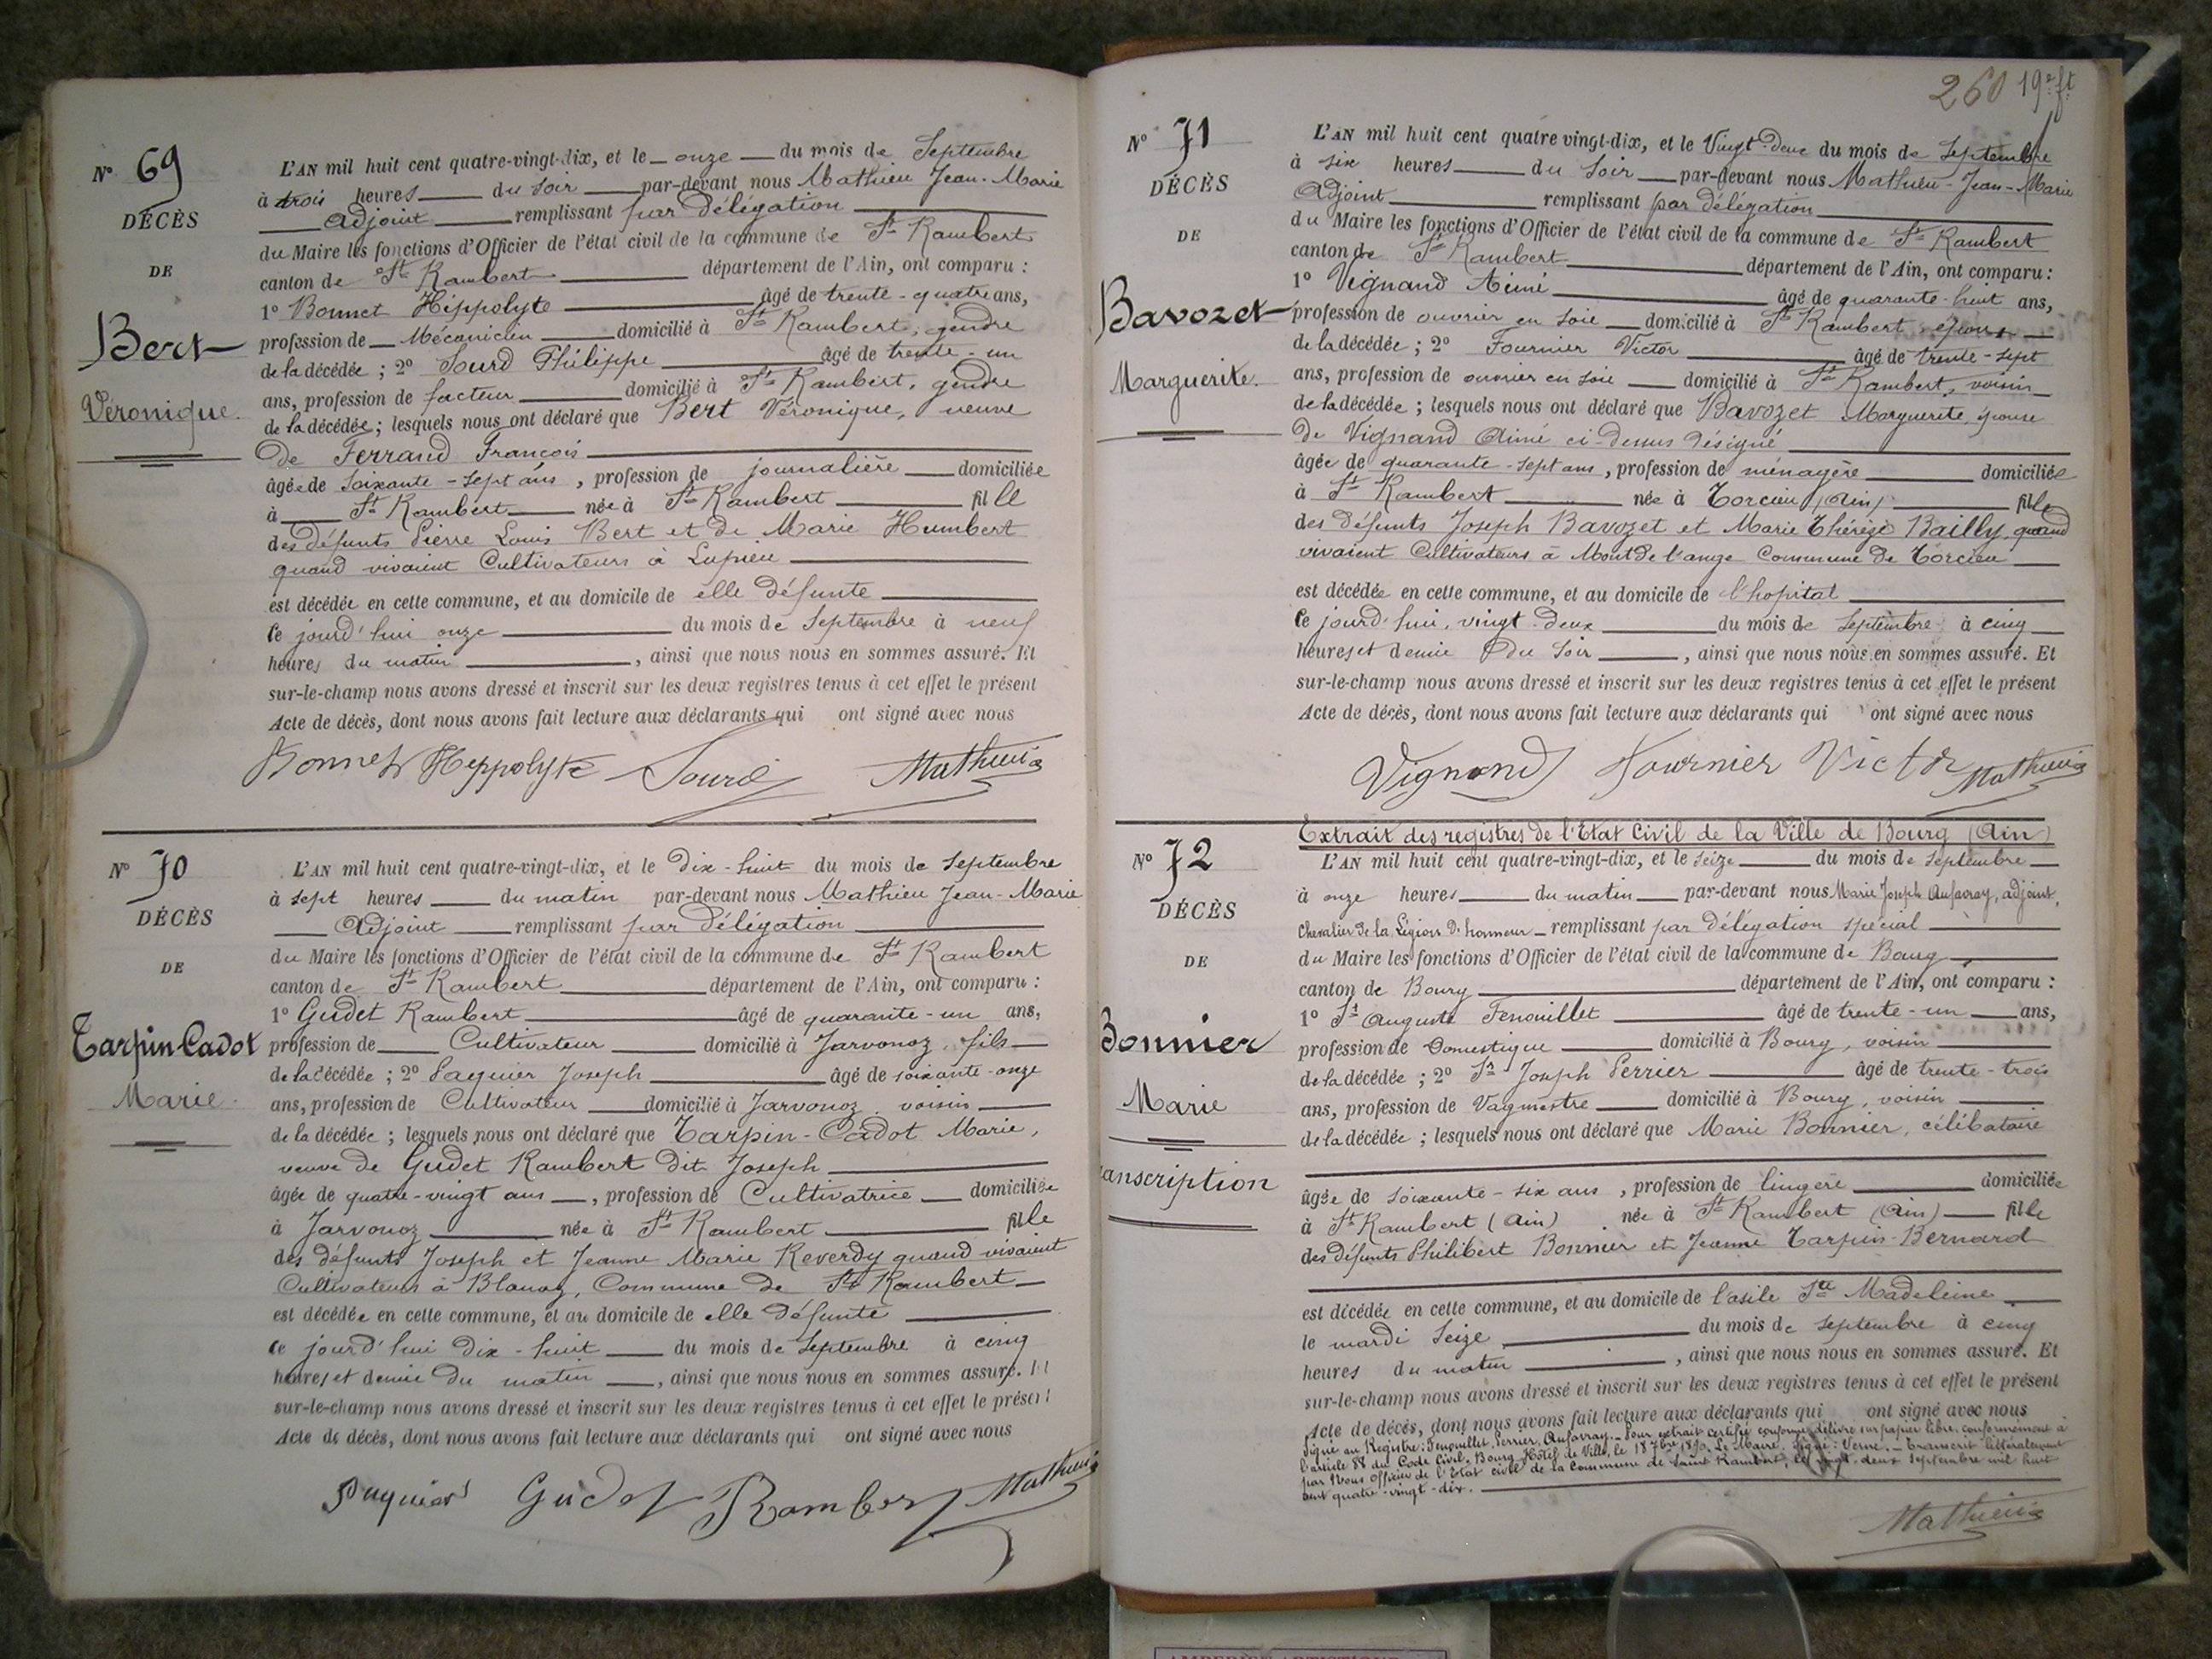 N° 69
DÉCÈS
DE
Bert
Véronique.
L'AN mil huit cent quatre-vingt-dix, et le onze du mois de Septembre
à trois heures du soir par-devant nous Mathieu Jean-Marie
Adjoint remplissant par délégation
du Maire les fonctions d'Officier de l'état civil de la commune de St Rambert
canton de St Rambert département de l'Ain, ont comparu :
1° Bonnet Hippolyte âgé de trente-quatre ans,
profession de Mécanicien domicilié à St Rambert, gendre
de la décédée ; 2° Sourd Philippe âgé de trente-un
ans, profession de facteur domicilié à St Rambert, gendre
de la décédée ; lesquels nous ont déclaré que Bert Véronique, veuve
de Ferrand François
âgée de soixante-sept ans, profession de journalière domiciliée
à St Rambert née à St Rambert fille
des défunts Pierre Louis Bert et de Marie Humbert
quand vivaient Cultivateurs à Lupieu
est décédée en cette commune, et au domicile de elle défunte
ce jourd'hui onze du mois de Septembre à neuf
heures du matin, ainsi que nous nous en sommes assuré. Et
sur-le-champ nous avons dressé et inscrit sur les deux registres tenus à cet effet le présent
Acte de décès, dont nous avons fait lecture aux déclarants qui ont signé avec nous
Bonnet Hippolyte Sourd Mathieu
N° 70
DÉCÈS
DE
Tarpin-Cadot
Marie.
L'AN mil huit cent quatre-vingt-dix, et le dix-huit du mois de Septembre
à sept heures du matin par-devant nous Mathieu Jean-Marie
Adjoint remplissant par délégation
du Maire les fonctions d'Officier de l'état civil de la commune de St Rambert
canton de St Rambert département de l'Ain, ont comparu :
1° Gudet Rambert âgé de quarante-un ans,
profession de Cultivateur domicilié à Javornoz, fils
de la décédée ; 2° Paquier Joseph âgé de soixante-onze
ans, profession de Cultivateur domicilié à Jarvonoz, voisin
de la décédée ; lesquels nous ont déclaré que Tarpin-Cadot Marie,
veuve de Gudet Rambert dit Joseph
âgée de quatre-vingt ans, profession de Cultivatrice domiciliée
à Jarvonoz née à St Rambert fille
des défunts Joseph et Jeanne Marie Reverdy quand vivaient
Cultivateurs à Blanaz, Commune de St Rambert
est décédée en cette commune, et au domicile de elle défunte
ce jourd'hui dix-huit du mois de Septembre à cinq
heures et demie du matin, ainsi que nous nous en sommes assuré. Et
sur-le-champ nous avons dressé et inscrit sur les deux registres tenus à cet effet le présent
Acte de décès, dont nous avons fait lecture aux déclarants qui ont signé avec nous
Paquier Gudet Rambert Mathieu
260 19e ft
N° 71
DÉCÈS
DE
Bavozet
Marguerite.
L'AN mil huit cent quatre vingt-dix, et le Vingt-deux du mois de Septembre
à six heures du Soir par-devant nous Mathieu-Jean-Marie
Adjoint remplissant par délégation
du Maire les fonctions d'Officier de l'état civil de la commune de St Rambert
canton de St Rambert département de l'Ain, ont comparu :
1° Vignand Aimé âgé de quarante-huit ans,
profession de ouvrier en soie domicilié à St Rambert époux
de la décédée ; 2° Fournier Victor âgé de trente-sept
ans, profession de ouvrier en soie domicilié à St Rambert, voisin
de la décédée ; lesquels nous ont déclaré que Bavozet Marguerite, épouse
de Vignand Aimé ci-dessus désigné
âgée de quarante-sept ans, profession de ménagère domiciliée
à St Rambert née à Torcieu (Ain) fille
des défunts Joseph Bavozet et Marie Thérèze Bailly, quand
vivaient Cultivateurs à Mont de l'ange Commune de Torcieu
est décédée en cette commune, et au domicile de l'hopital
ce jourd'hui, vingt-deux du mois de Septembre à cinq
heures et demie du Soir, ainsi que nous nous en sommes assuré. Et
sur-le-champ nous avons dressé et inscrit sur les deux registres tenus à cet effet le présent
Acte de décès, dont nous avons fait lecture aux déclarants qui ont signé avec nous
Vignand Fournier Victor Mathieu
Extrait des registres de l'Etat Civil de la Ville de Bourg (Ain)
N° 72
DÉCÈS
DE
Bonnier
Marie
anscription
L'AN mil huit cent quatre-vingt-dix, et le seize du mois de Septembre
à onze heures du matin par-devant nous Marie Joseph Aufavray, adjoint,
Chevalier de la Légion d'honneur remplissant par délégation spécial
du Maire les fonctions d'Officier de l'état civil de la commune de Bourg
canton de Bourg département de l'Ain, ont comparu :
1° Sr Auguste Fenouillet âgé de trente-un ans,
profession de Domestique domicilié à Bourg, voisin
de la décédée ; 2° Sr Joseph Perrier âgé de trente-trois
ans, profession de Vagmestre domicilié à Bourg, voisin
de la décédée ; lesquels nous ont déclaré que Marie Bonnier, célibataire
âgée de soixante-six ans, profession de lingère domiciliée
à St Rambert (Ain) née à St Rambert (Ain) fille
des défunts Philibert Bonnier et Jeanne Tarpin-Bernard
est décédée en cette commune, et au domicile de l'asile Ste Madeleine
le mardi Seize du mois de Septembre à cinq
heures du matin, ainsi que nous nous en sommes assuré. Et
sur-le-champ nous avons dressé et inscrit sur les deux registres tenus à cet effet le présent
Acte de décès, dont nous avons fait lecture aux déclarants qui ont signé avec nous
Signé au Registre : Fenouillet, Perrier, Aufavray. Pour extrait certifié conforme délivré sur papier libre, conformément à
l'article 88 du Code Civil. Bourg Hôtel de Ville, le 18 7bre 1890. Le Maire, Signé : Verne. Transcrit littéralement
par Nous officier de l'Etat civil de la Commune de Saint Rambert, le vingt-deux Septembre mil huit
cent quatre-vingt-dix.
Mathieu